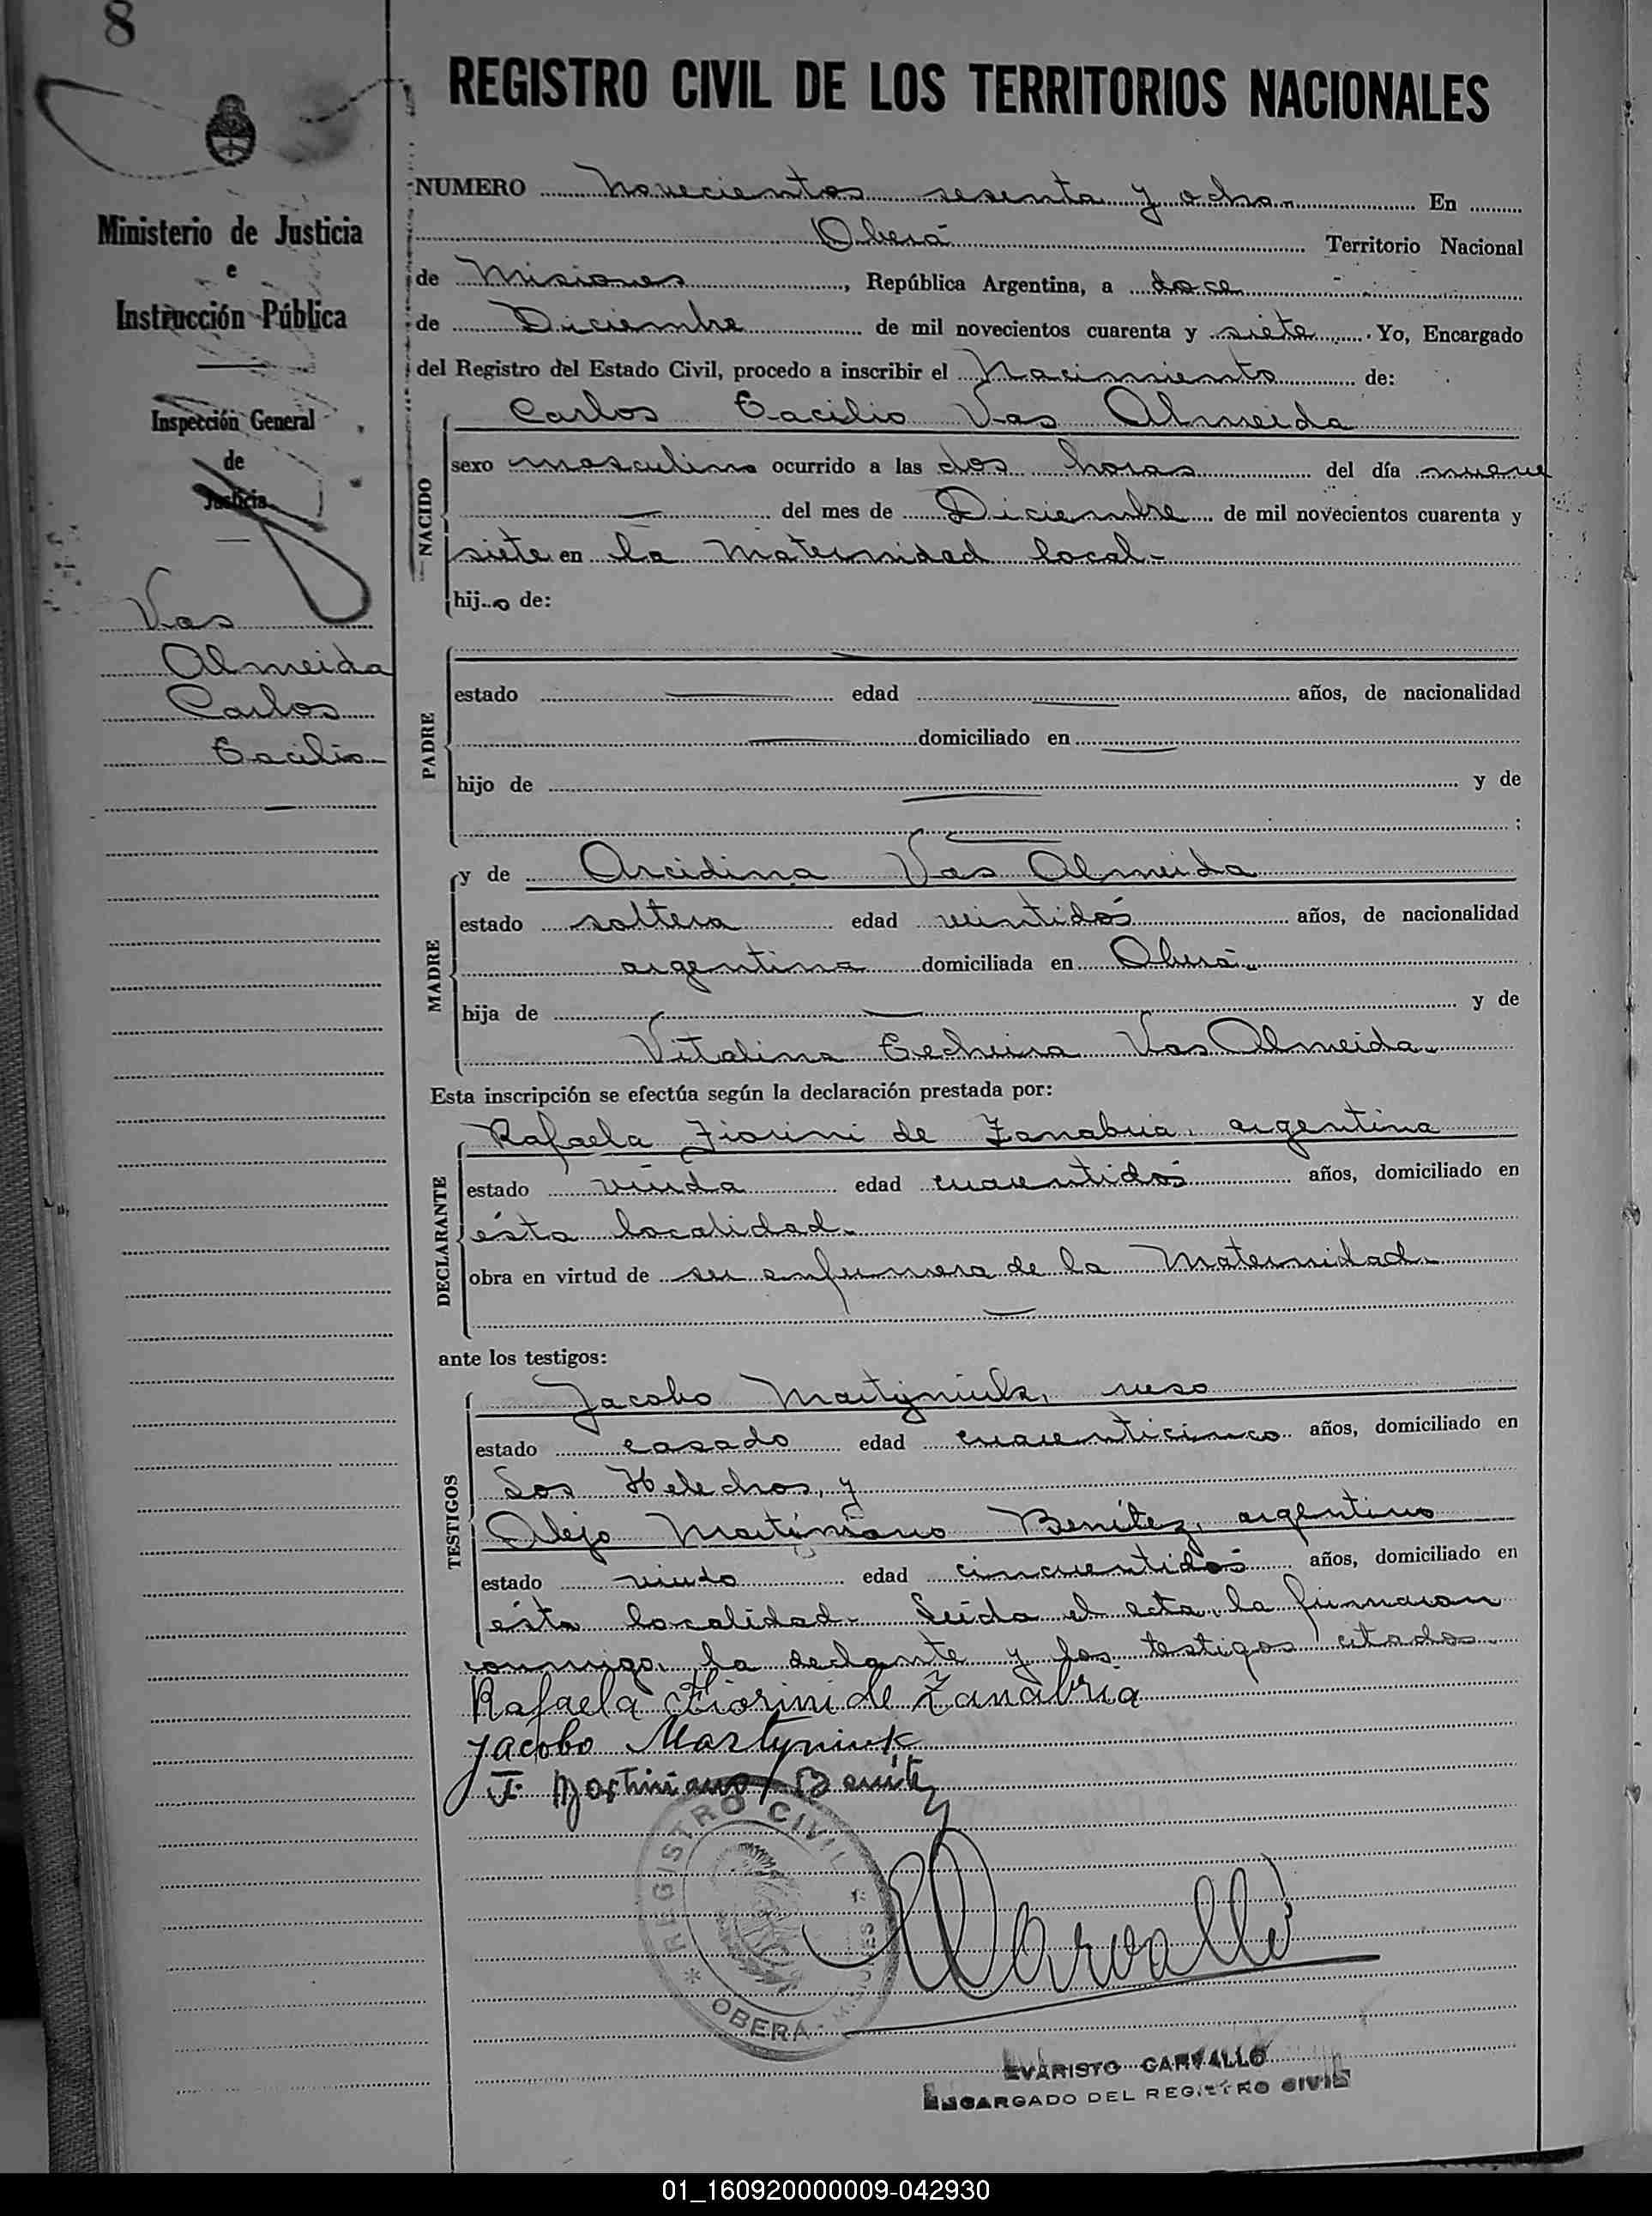 8
REGISTRO CIVIL DE LOS TERRITORIOS NACIONALES
Ministerio de Justicia
e
Instrucción Pública
Inspección General
de
Justicia
Vas
Almeida
Carlos
Cacilio
NUMERO novecientos sesenta y ocho.. En
Oberá Territorio Nacional
de Misiones, República Argentina, a doce
de Diciembre de mil novecientos cuarenta y siete. Yo, Encargado
del Registro del Estado Civil, procedo a inscribir el Nacimiento de:
NACIDO
Carlos Cacilio Vas Almeida
sexo masculino ocurrido a las dos horas del día nueve
— del mes de Diciembre de mil novecientos cuarenta y
siete en la Maternidad local-
hijo de:
PADRE
—
estado — edad — años, de nacionalidad
— domiciliado en —
hijo de — y de
— ;
MADRE
y de Arcidina Vas Almeida
estado soltera edad veintidós años, de nacionalidad
argentina domiciliada en Oberá-
hija de — y de
Vitalina Vas Almeida-
Esta inscripción se efectúa según la declaración prestada por:
DECLARANTE
Rafaela Fiorini de Zanabria, argentina
estado viuda edad cuarentidós años, domiciliado en
ésta localidad-
obra en virtud de ser enfermera de la Maternidad-
—
ante los testigos:
TESTIGOS
Jacobo Martyniuk, ruso
estado casado edad cuarenticinco años, domiciliado en
Los Helechos, y
Alejo Martiniano Benítez, argentino
estado viudo edad cincuentidós años, domiciliado en
ésta localidad- Leída el acta, la firmaron
conmigo, la declante y los testigos citados-
Rafaela Fiorini de Zanabria
Jacobo Martyniuk
Martiniano Benítez
REGISTRO CIVIL
* OBERÁ - MISIONES
Carvallo
EVARISTO CARVALLO
ENCARGADO DEL REGISTRO CIVIL
01_160920000009-042930